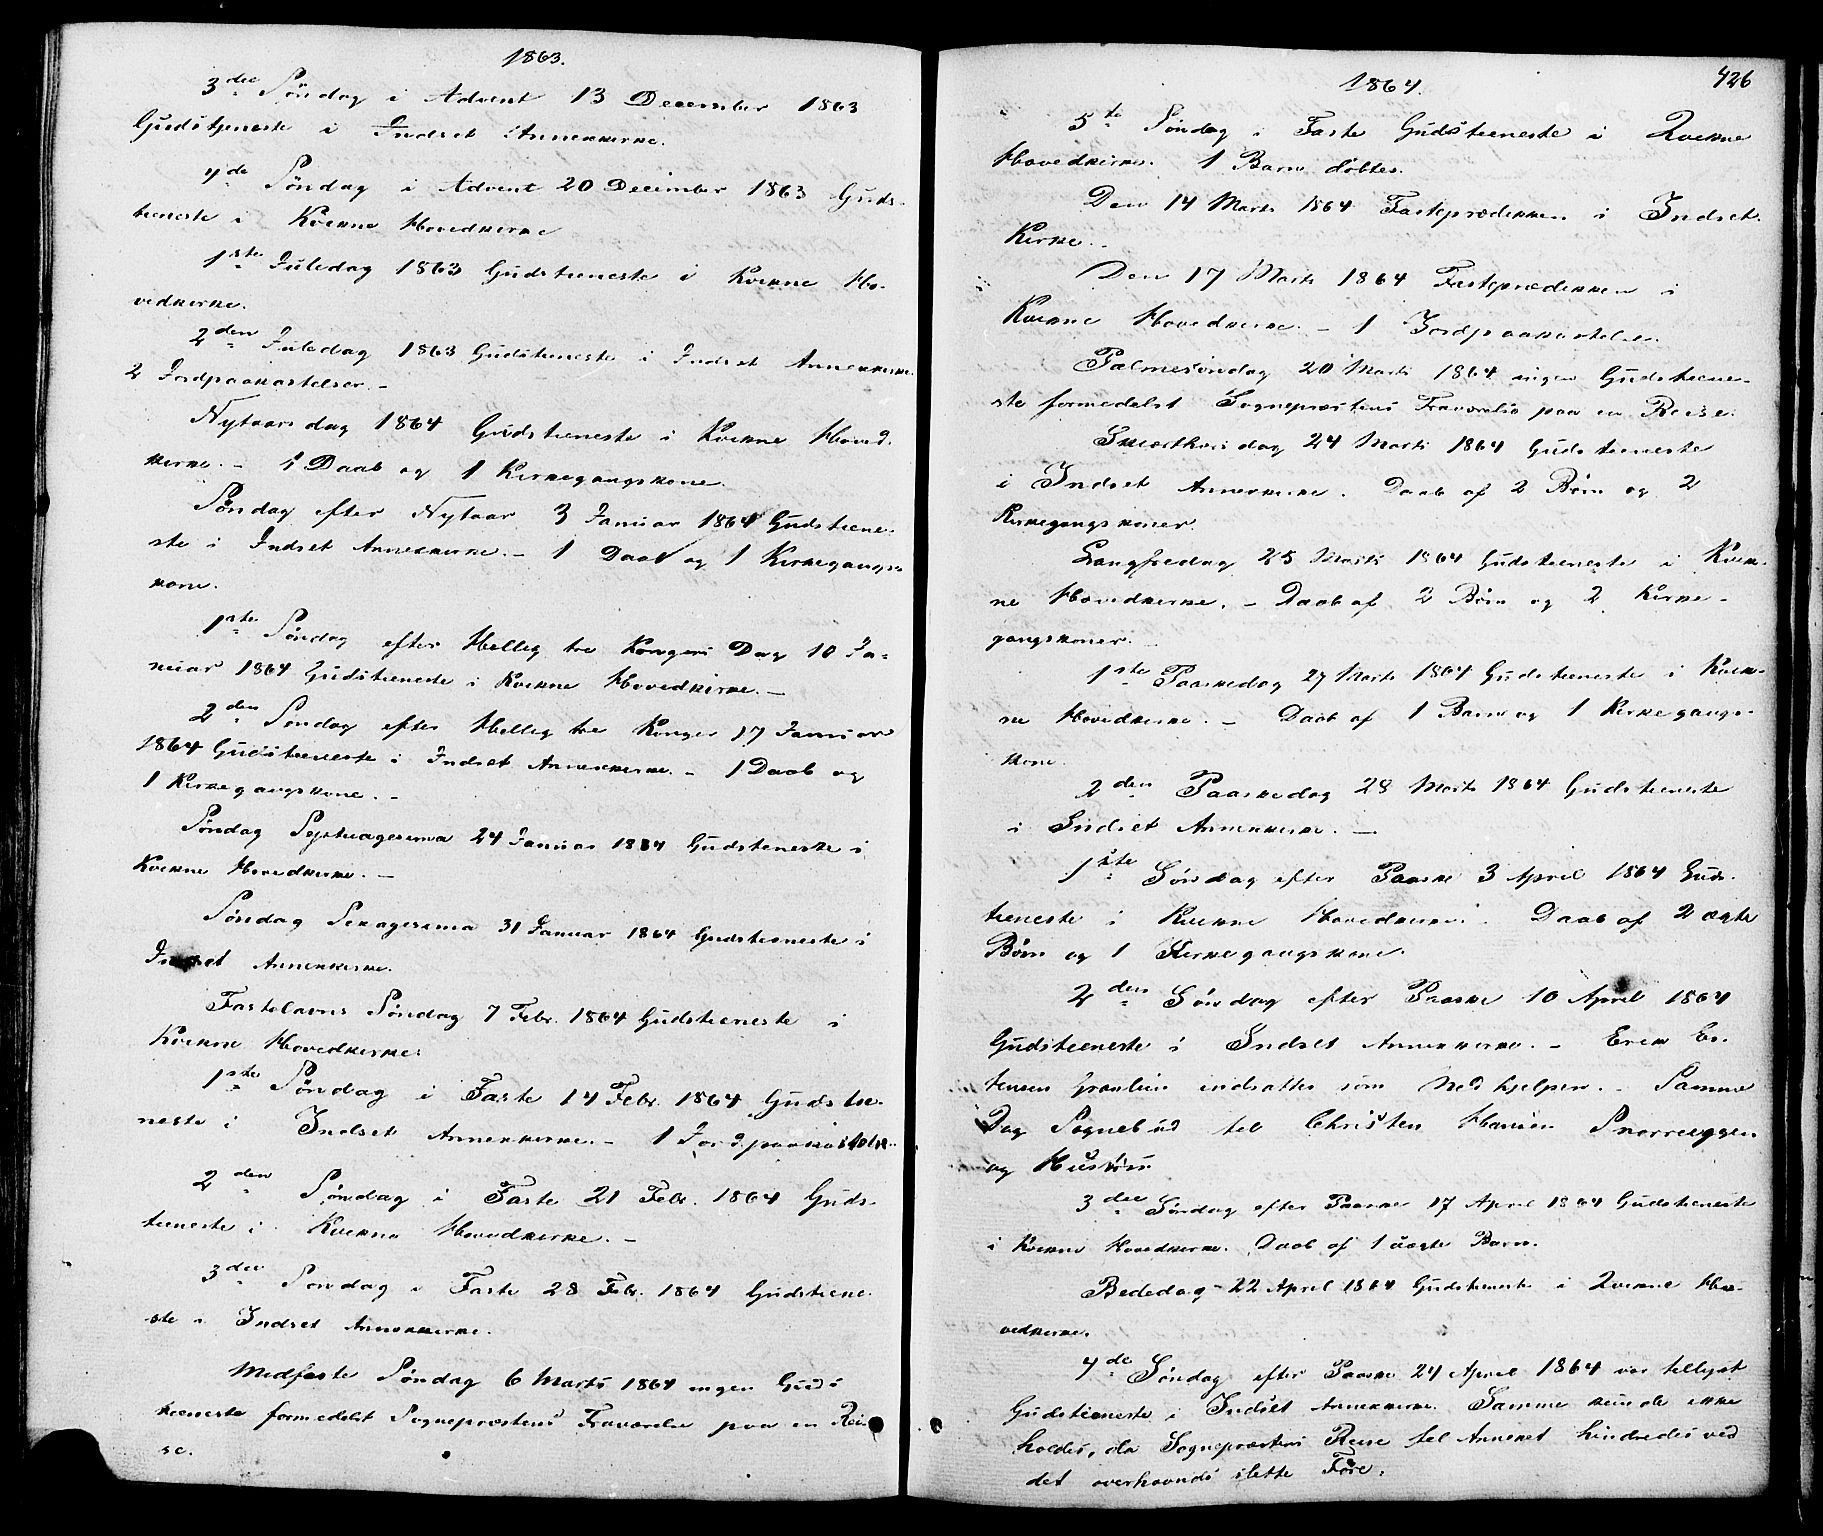 1863.
3die Søndag i Advent 13 December 1863
Gudstjeneste i Indset Annexkirke.
4de Søndag i Advent 20 December 1863 Guds-
tieneste i Kvikne Hovedkirke
1ste Juledag 1863 Gudstieneste i Kvikne Ho-
vedkirke.
2den Juledag 1863 Gudstieneste i Indset Annexkirke.
2 Jordpaakastelser. –
Nytaarsdag 1864 Gudstieneste i Kvikne Hoved-
kirke. – 1 Daab og 1 Kirkegangskone.
Søndag efter Nytaar 3 Januar 1864 Gudstiene-
ste i Indset Annexkirke. – 1 Daab og 1 Kirkegangs-
kone.
1ste Søndag efter Hellig tre Kongers Dag 10 Ja-
nuar 1864 Gudstieneste i Kvikne Hovedkirke. –
2den Søndag efter Hellig tre Konger 17 Januar
1864 Gudstieneste i Indset Annexkirke. – 1 Daab og
1 Kirkegangskone. –
Søndag Septuagesima 24 Januar 1864 Gudstieneste i
Kvikne Hovedkirke. –
Søndag Sexagesima 31 Januar 1864 Gudstieneste i
Indset Annexkirke.
Fastelavns Søndag 7 Febr. 1864 Gudstieneste i
Kvikne Hovedkirke.
1ste Søndag i Faste 14 Febr. 1864 Gudstie-
neste i Indset Annexkirke. – 1 Jordpaakastelse.
2den Søndag i Faste 21 Febr. 1864 Guds-
tieneste i Kvikne Hovedkirke. –
3die Søndag i Faste 28 Febr. 1864 Gudstiene-
ste i Indset Annexkirke.
Midfaste Søndag 6 Marts 1864 ingen Guds
tieneste formedelst Sognepræstens Fraværelse paa en Rei-
se.
1864.
426
5te Søndag i Faste Gudstieneste i Qvikne
Hovedkirke. 1 Barn døbtes.
Den 14 Marts 1864 Fasteprædiken i Indset
Kirke. –
Den 17 Marts 1864 Fasteprædiken i
Kvikne Hovedkirke. – 1 Jordpaakastelse.
Palmesøndag 20 Marts 1864 ingen Gudstiene-
ste formedelst Sognepræstens Fraværelse paa en Reise.
Skiærthorsdag 24 Marts 1864 Gudstieneste
i Indset Annexkirke. Daab af 2 Børn og 2
Kirkegangskoner.
Langfredag 25 Marts 1864 Gudstieneste i Kvik-
ne Hovedkirke. – Daab af 2 Børn og 2 Kirke-
gangskoner. –
1ste Paaskedag 27 Marts 1864 Gudstieneste i Kvik-
ne Hovedkirke. – Daab af 1 Barn og 1 Kirkegangs-
kone.
2den Paaskedag 28 Marts 1864 Gudstieneste
i Indset Annexkirke. –
1ste Søndag efter Paaske 3 April 1864 Guds-
tieneste i Kvikne Hovedkirke. Daab af 2 ægte
Børn og 1 Kirkegangskone.
2den Søndag efter Paaske 10 April 1864
Gudstieneste i Indset Annexkirke. – Erik Es-
tensen indsattes som Medhjelper. – Samme
Dag Sognebud til Christen Hansen Snorreeggen
og Hustru.
3die Søndag efter Paaske 17 April 1864 Gudstieneste
i Kvikne Hovedkirke. Daab af 1 uægte Barn.
Bededag – 22 April 1864 Gudstieneste i Qvikne Ho-
vedkirke.
4de Søndag efter Paaske 24 April 1864 var tillyst
Gudstieneste i Indset Annexkirke. Samme kunde ikke
holdes, da Sognepræstens Reise til Annexet hindredes ved
det overhovnds slette Føre.